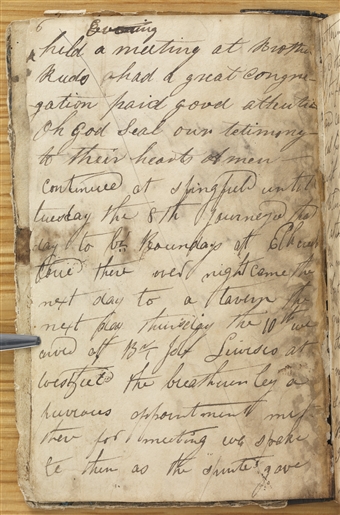 6 Evening
held a meeting at Brother
Rudo had a great congre
gation paid good attentio
Oh God Seal our tetimony
to their hearts amen
Continued at spingfield until
tuesday the 8th Journeyed that
day to br Boundays at
there over night came the
next day to a tavern the
next day thursday the 10th we
arived at Br at
westfield the breatheren by a
previous appointment met
there for meeting we spoke
to them as the spirite gave